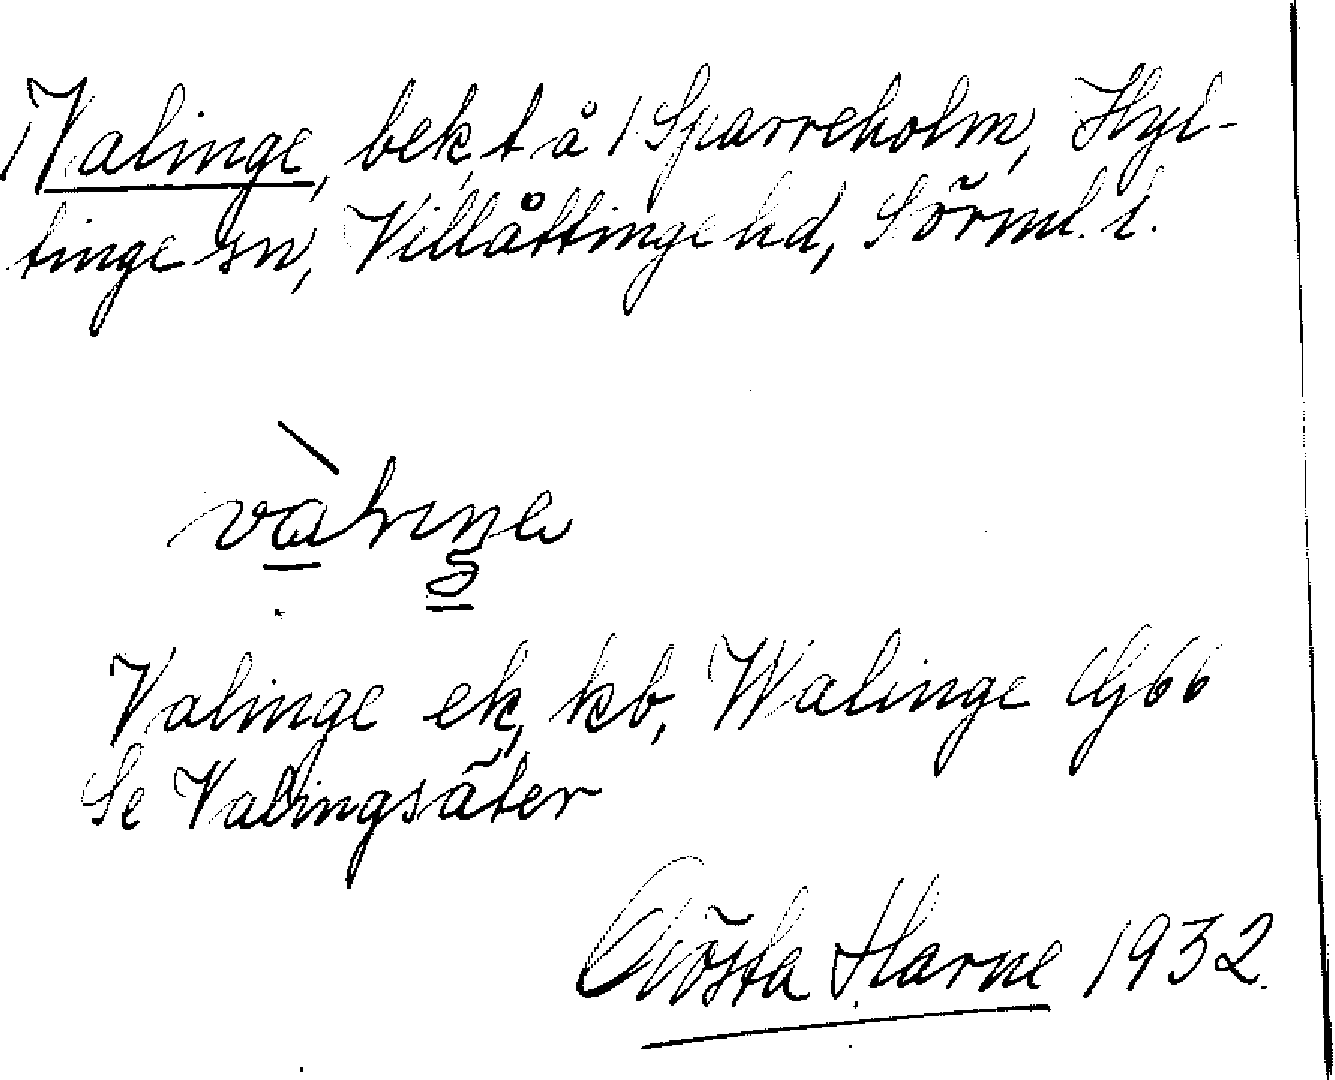 Valinge, bek, t å / Sparreholm, Hyl-
tinge sn, Villåttinge hd, Sörml. l.
Valinge ek, kb, Walinge Gj66
Se Valingsäter
Gösta Harne 1932.